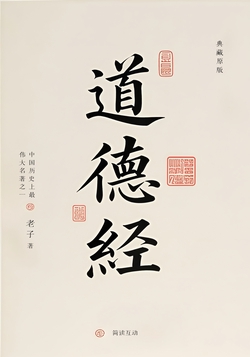 典藏原版
道德经
中国历史上最
伟大名著之一
老子 著
简读互动